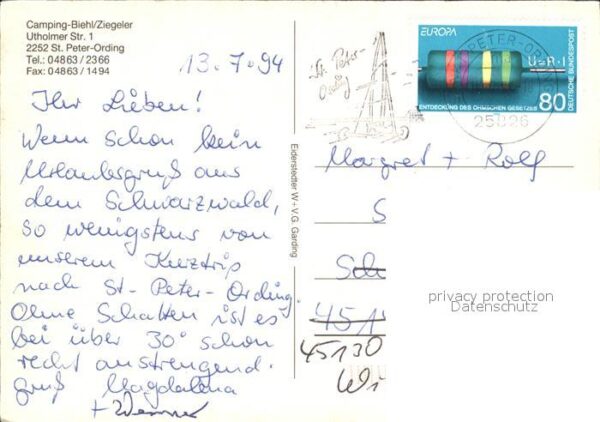 Camping-Biehl/Ziegeler
Utholmer Str. 1
2252 St. Peter-Ording
Tel.: 04863/2366
Fax: 04863/1494
13.7.94
Ihr Lieben!
Wenn schon kein
Urlaubsgruß aus
dem Schwarzwald,
so wenigstens von
unserem Kurztrip
nach St.-Peter-Ording.
Ohne Schatten ist es
bei über 30° schon
recht anstrengend.
Gruß Magdalena
+ Werner
Eiderstedter W+V.G. Garding
St. Peter-
Ording
EUROPA
U=R·I
ENTDECKUNG DES OHMSCHEN GESETZES
80
DEUTSCHE BUNDESPOST
PETER-OR
25826
Margret + Rolf
S
Sch
451
45130
Wi
privacy protection
Datenschutz